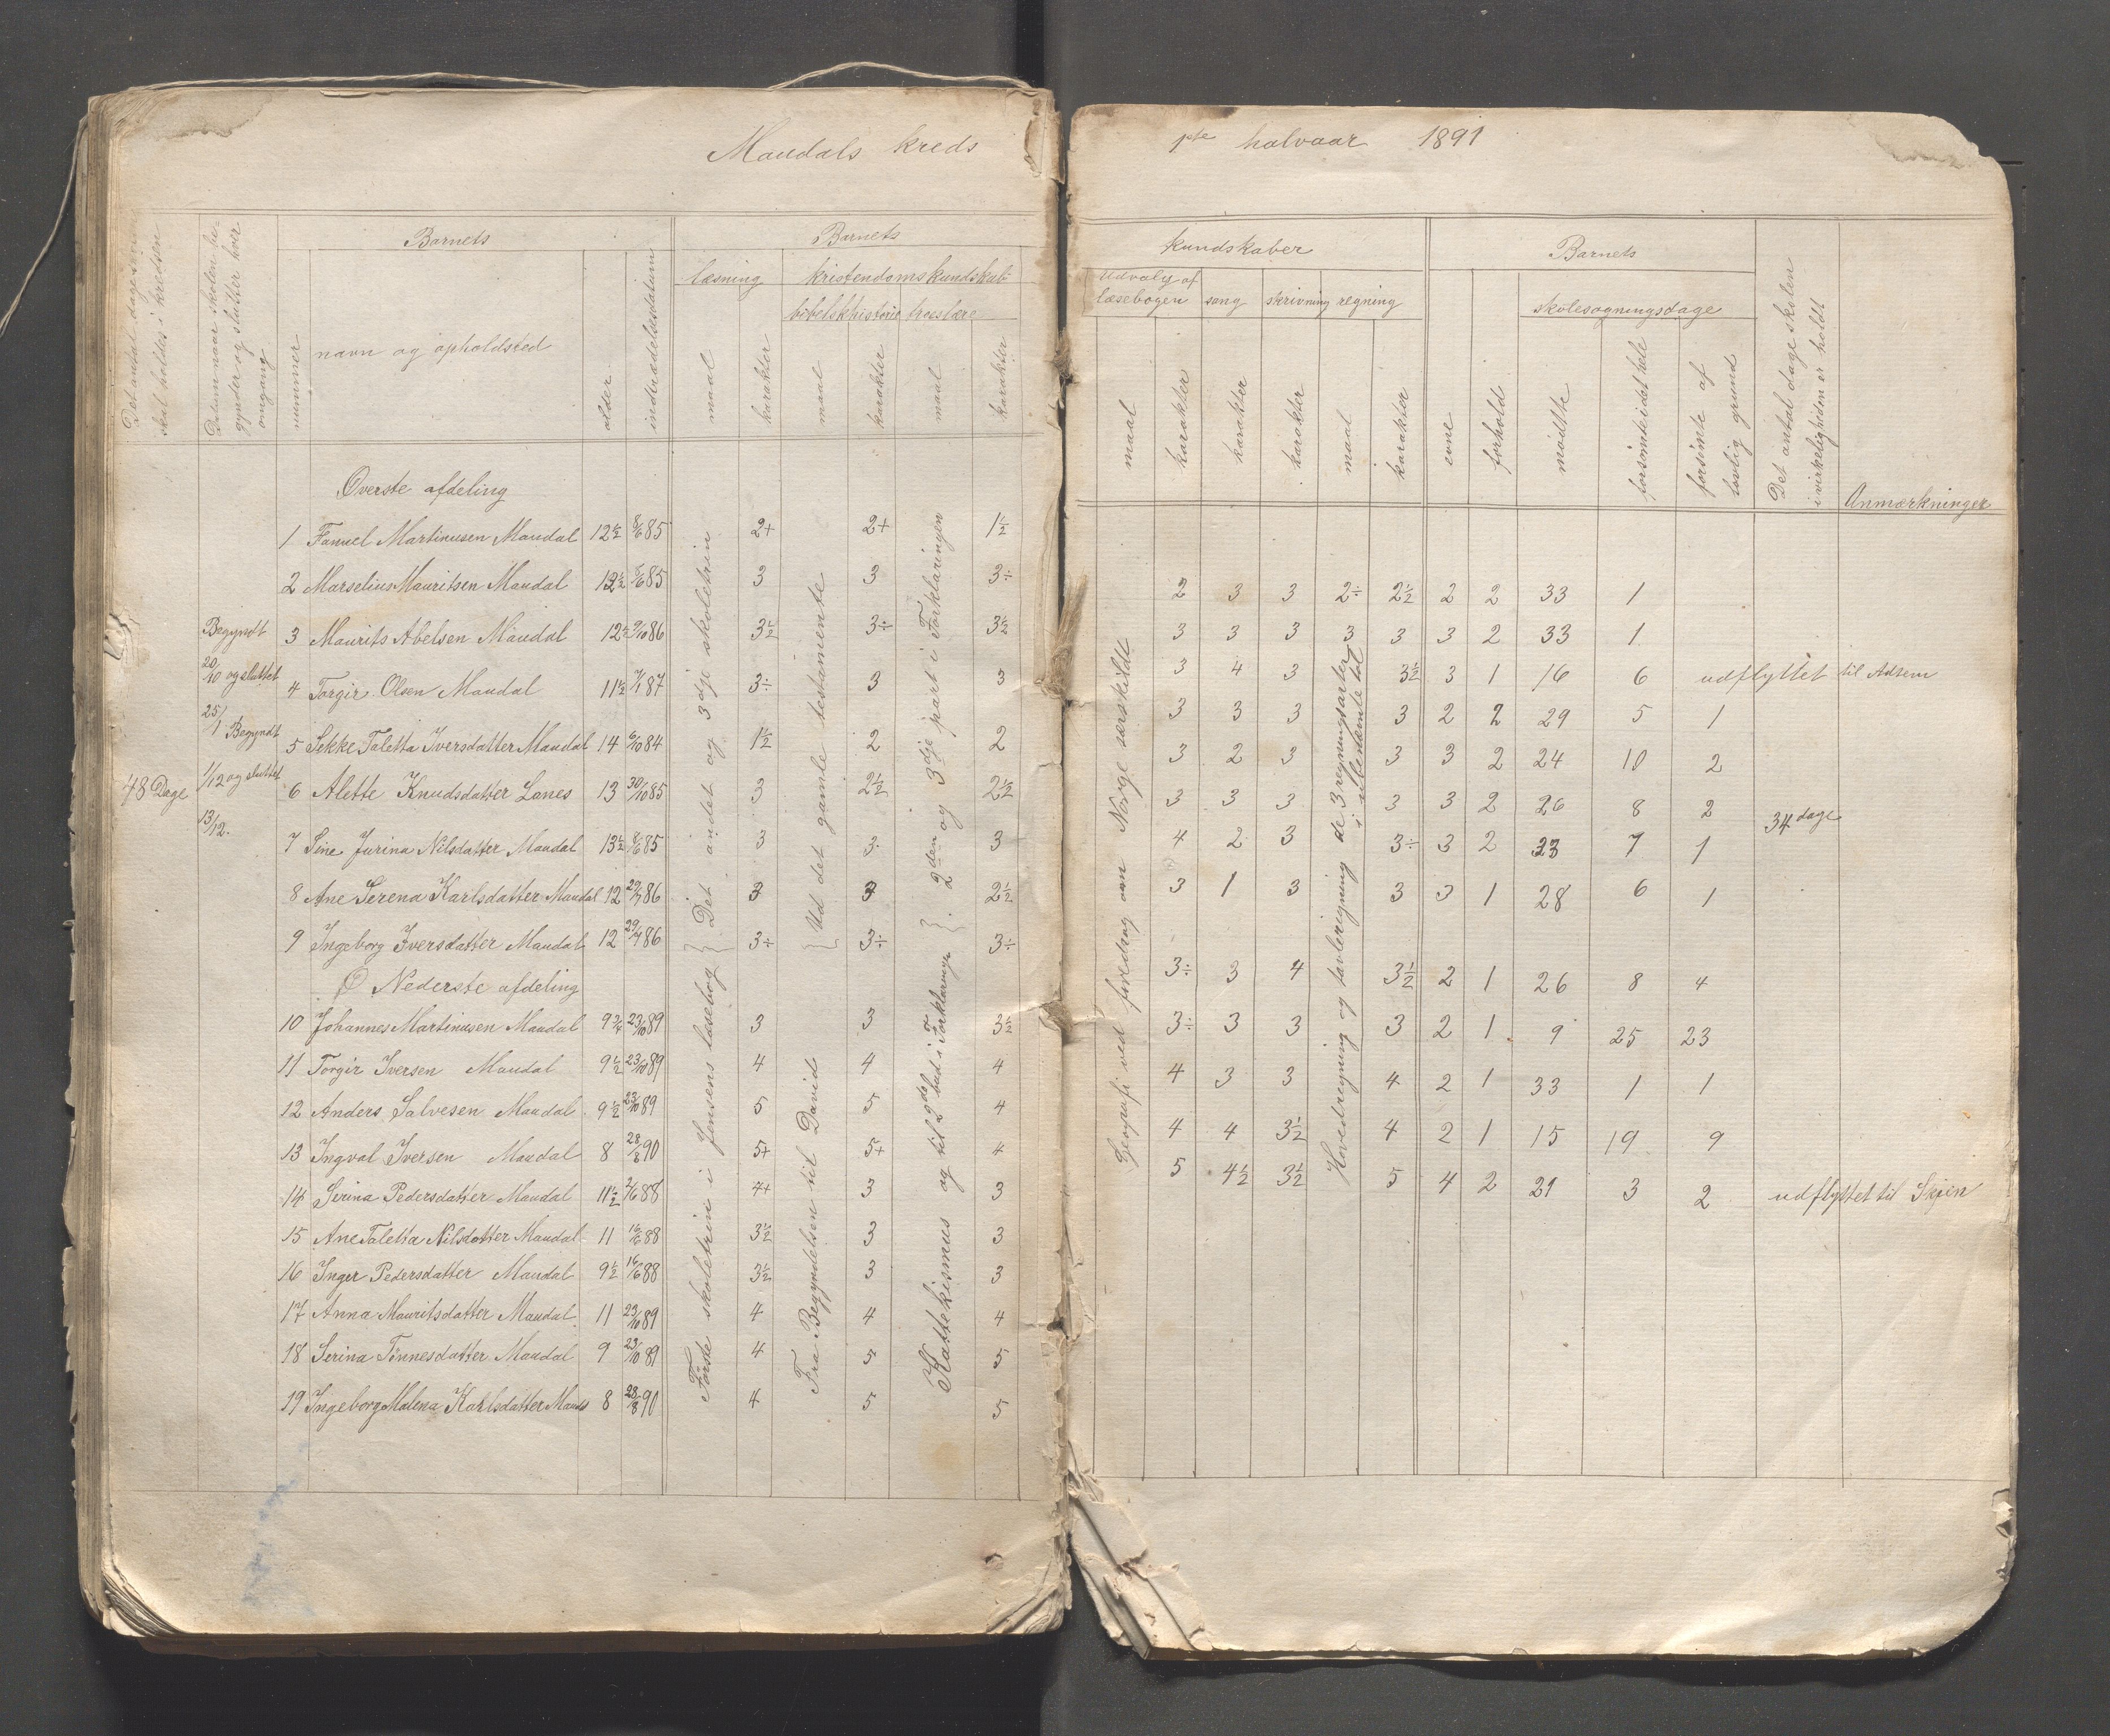 Maudals kreds
1ste halvaar 1891
Det antal dage som
skal holdes i kredsen
Datum naar skolen be-
gynder og slutter hver
omgang
Barnets
nummer
navn og opholdsted
alder
indtrædelsesdatum
Barnets
læsning
kristendomskundskab
bibelskhistorie
troeslære
maal
karakter
maal
karakter
maal
karakter
kundskaber
Udvalg af
læsebogen
sang
skrivning
regning
maal
karakter
karakter
karakter
maal
karakter
Barnets
evne
forhold
skolesøgningsdage
mødte
forsømte i det hele
forsømte af
lovlig grund
Det antal dage skolen
i virkeligheden er holdt
Anmærkninger
48 Dage
Begyndt
20/10 og sluttet
25/1 Begyndt
1/12 og sluttet
13/12.
Øverste afdeling
1 Fanuel Martinusen Maudal 12½ 8/6 85 2+ 2+ 1½
2 Marselius Mauritsen Maudal 12½ 8/6 85 3 3 3÷
3 Maurits Abelsen Maudal 12½ 9/10 86 3½ 3÷ 3½
4 Torgir Olsen Maudal 11½ 7/1 87 3÷ 3 3
5 Sekke Taletta Iversdatter Maudal 14 6/10 84 1½ 2 2
6 Alette Knudsdatter Lanes 13 30/10 85 3 2½ 2½
7 Sine Jurina Nilsdatter Maudal 13½ 8/6 85 3 3 3
8 Ane Serena Karlsdatter Maudal 12 29/7 86 3 3 2½
9 Ingeborg Iversdatter Maudal 12 29/7 86 3÷ 3÷ 3÷
Nederste afdeling
10 Johannes Martinusen Maudal 9¾ 23/10 89 3 3 3½
11 Torgir Iversen Maudal 9½ 23/10 89 4 4 4
12 Anders Salvesen Maudal 9½ 23/10 89 5 5 4
13 Ingval Iversen Maudal 8 28/8 90 5+ 5+ 4
14 Serina Pedersdatter Maudal 11½ 88 4+ 3 3
15 Ane Taletta Nilsdatter Maudal 11 16/6 88 3½ 3 3
16 Inger Pedersdatter Maudal 9½ 16/6 88 3½ 3 3
17 Anna Mauritsdatter Maudal 11 23/10 89 4 4 4
18 Serina Tønnesdatter Maudal 9 23/10 89 4 5 5
19 Ingeborg Malena Karlsdatter Maudal 8 28/8 90 4 5 5
Det andet og 3dje skoletrin
Første skoletrin i Jensens læsebog
Ud det gamle testamente
Fra Begyndelsen til David
2den og 3dje part i Forklaringen
Kattekismus og til 2det bud i Forklaringe
Geografi ved foredrag om Norge særskildt
Hovedregning og tavleregning de 3 regningsarter
i ubenævnte tal
2 3 3 2÷ 2½ 2 2 33 1
3 3 3 3 3 3 2 33 1
3 4 3 3½ 3 1 16 6 udflyttet til Adsem
3 3 3 3 2 2 29 5 1
3 2 3 3 3 2 24 10 2
3 3 3 3 3 2 26 8 2
34 dage
4 2 3 3÷ 3 2 23 7 1
3 1 3 3 3 1 28 6 1
3÷ 3 4 3½ 2 1 26 8 4
3÷ 3 3 3 2 1 9 25 23
4 3 3 4 2 1 33 1 1
4 4 3½ 4 2 1 15 19 9
5 4½ 3½ 5 4 2 21 3 2 udflyttet til Skjen